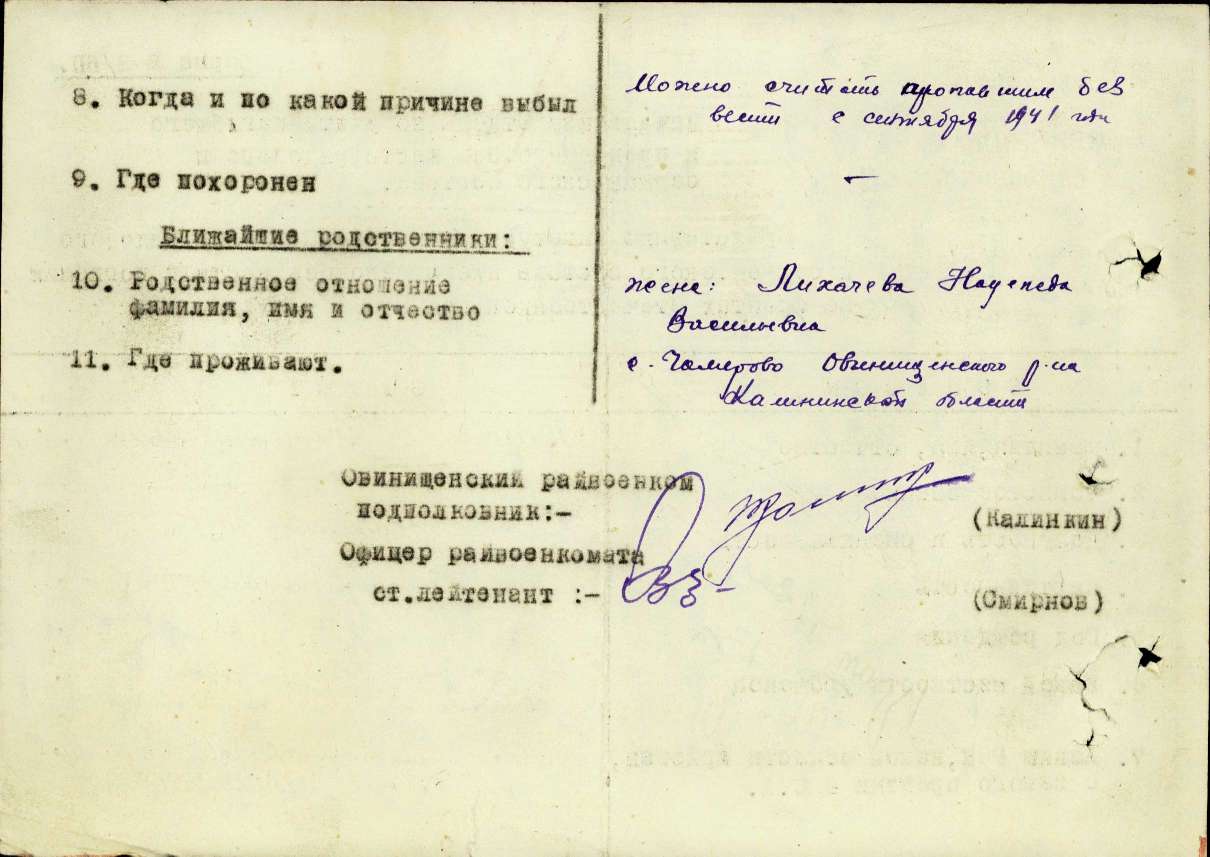 8. Когда и по какой причине выбыл
Можно считать пропавшим без
вести с сентября 1941 года
9. Где похоронен
—
Ближайшие родственники:
10. Родственное отношение
фамилия, имя и отчество
жена: Лихачева Надежда
Васильевна
11. Где проживают.
с. Чамерово Овинищенского р-на
Калининской области
Овинищенский райвоенком
подполковник:-
(Калинкин)
Офицер райвоенкомата
ст.лейтенант :-
(Смирнов)